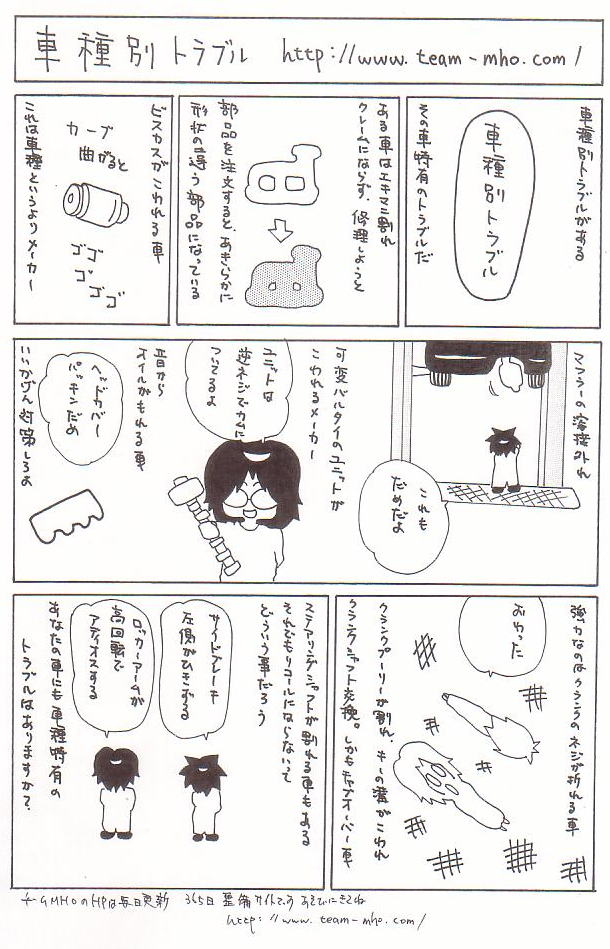 車種別トラブル http://www.team-mho.com/
車種別トラブルがある
車種別トラブル
その車特有のトラブルだ
ある車はエキマニ割れ
クレームにならず、修理しようと
部品を注文すると、あきらかに
形状の違う部品になっている
ビスカスがこわれる車
カーブ
曲がると
ゴゴ
ゴ
ゴゴゴ
これは車種というよりメーカー
マフラーの溶接外れ
これも
だめだよ
可変バルタイのユニットが
こわれるメーカー
ユニットは
逆ネジでカムに
ついてるよ
昔から
オイルがもれる車
ヘッドカバー
パッキンだめ
いいかげん対策しろよ
強力なのはクランクのネジが折れる車
おわった
クランクプーリーが割れ、キーの溝がこわれ
クランクシャフト交換。しかもキャブオーバー車
ステアリングシャフトが割れる車もある
それでもリコールにならないって
どういう事だろう
サイドブレーキ
左側がひきずる
ロッカーアームが
高回転で
アディオスする
あなたの車にも車種特有の
トラブルはありますか?
チームMHOのHPは毎日更新 365日 整備サイトです あそびにきてね
http://www.team-mho.com/